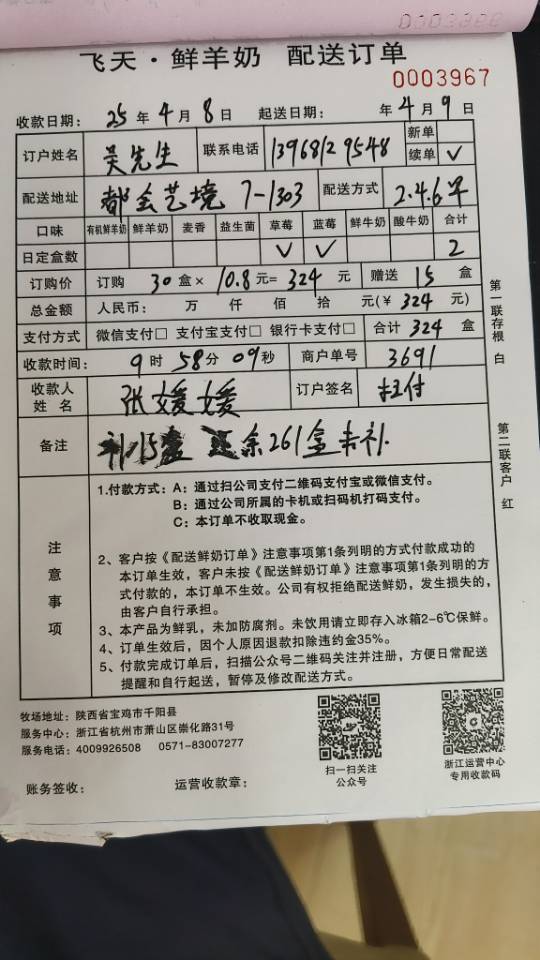 飞天·鲜羊奶 配送订单
0003967
收款日期： 25 年 4 月 8 日 起送日期： 年 4 月 9 日
订户姓名 吴先生 联系电话 13968129548 新单
续单 ✓
配送地址 都会艺境 7-1303 配送方式 2.4.6早
口味 有机鲜羊奶 鲜羊奶 麦香 益生菌 草莓 蓝莓 鲜牛奶 酸牛奶 合计
日定盒数 ✓ ✓ 2
订购价 订购 30 盒× 10.8 元= 324 元 赠送 15 盒
总金额 人民币： 万 仟 佰 拾 元(￥ 324 元)
支付方式 微信支付□ 支付宝支付□ 银行卡支付□ 合计 324 盒
收款时间： 9 时 58 分 09 秒 商户单号 3691
收款人姓名 张媛媛 订户签名 扫付
备注 余261盒未补
注意事项
1.付款方式：A：通过扫公司支付二维码支付宝或微信支付。
B：通过公司所属的卡机或扫码机打码支付。
C：本订单不收取现金。
2、客户按《配送鲜奶订单》注意事项第1条列明的方式付款成功的
本订单生效，客户未按《配送鲜奶订单》注意事项第1条列明的方
式付款的，本订单不生效。公司有权拒绝配送鲜奶，发生损失的，
由客户自行承担。
3、本产品为鲜乳，未加防腐剂。未饮用请立即存入冰箱2-6℃保鲜。
4、订单生效后，因个人原因退款扣除违约金35%。
5、付款完成订单后，扫描公众号二维码关注并注册，方便日常配送
提醒和自行起送，暂停及修改配送方式。
第一联存根 白
第二联客户 红
牧场地址：陕西省宝鸡市千阳县
服务中心：浙江省杭州市萧山区崇化路31号
服务电话：4009926508 0571-83007277
扫一扫关注
公众号
浙江运营中心
专用收款码
账务签收： 运营收款章：